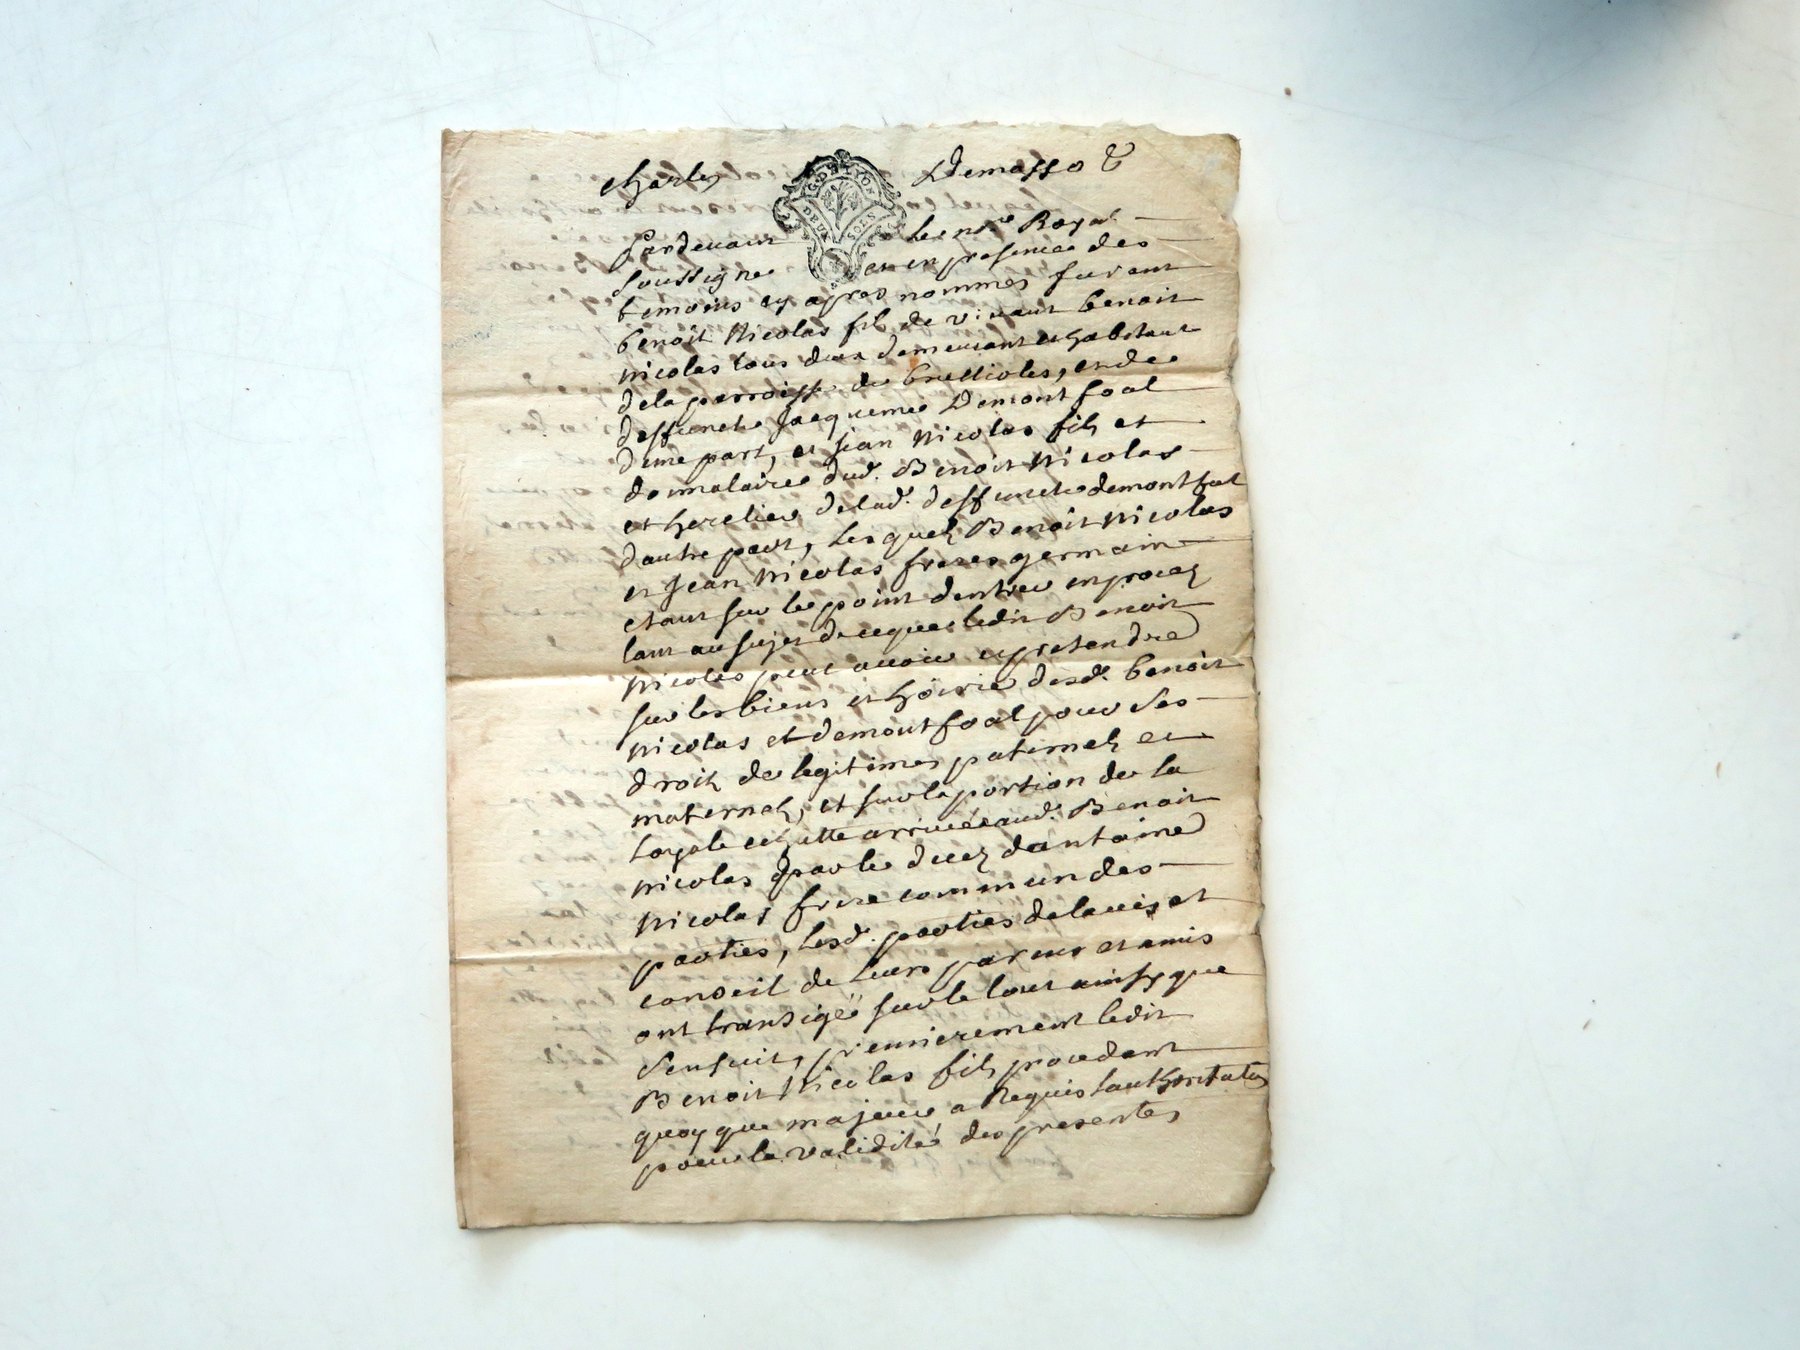 charles Demasso &
G. DE LYON
DEUX SOLS
Pardevant le nre Royal
soussigne et en presence des
temoins cy apres nommes furent
benoit Nicolas fils de vivant benoit
nicolas tous deux demeurant et habitant
de la parroisse de brullioles, et de
deffuncte Jacqueme Demontfoal
d'une part, et jean Nicolas fils et
donnataire dud. Benoit Nicolas
et heretier de lad. deffuncte demontfoal
dautre part, lesquels Benoit Nicolas
et Jean Nicolas freres germain
etant sur le point dentrer en proces
tant au sujet de ce que ledit Benoit
Nicolas peut avoir et pretendre
sur les biens et hoirie desd. benoit
Nicolas et demontfoal pour ses
droits de legitimes paternels et
maternels, et sur la portion de la
Loyale echutte arrivée aud. Benoit
Nicolas par le deces dantoine
Nicolas frere commun des
parties, Lesd. parties de lavis et
conseil de leurs parens et amis
ont transigé sur le tout ainsy que
sensuit, premierement ledit
Benoit Nicolas fils procedant
quoy que majeur a Requis
pour la validité des presentes